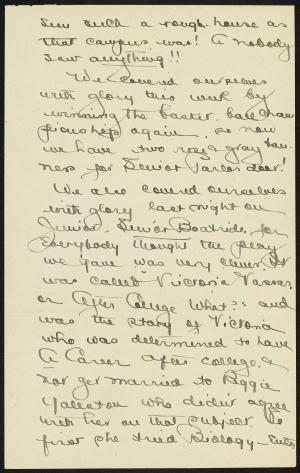 saw such a rough-house as
that campus was! & nobody
saw anything!!
We covered ourselves
with glory this week by
winning the basket ball cham
pionship again, so now
we have two rose & gray ban
ners for Senior Parlor door!
We also covered ourselves
with glory last night on
Junior-Senior Boatride, for
everybody thought the play
we gave was very clever. It
was called "Victoria Vassar,
or After College What?": and
was the story of Victoria
who was determined to have
A Career after college, &
not get married to Reggie
Yaleton who didn't agree
with her on that subject. So
first she tried Biology—